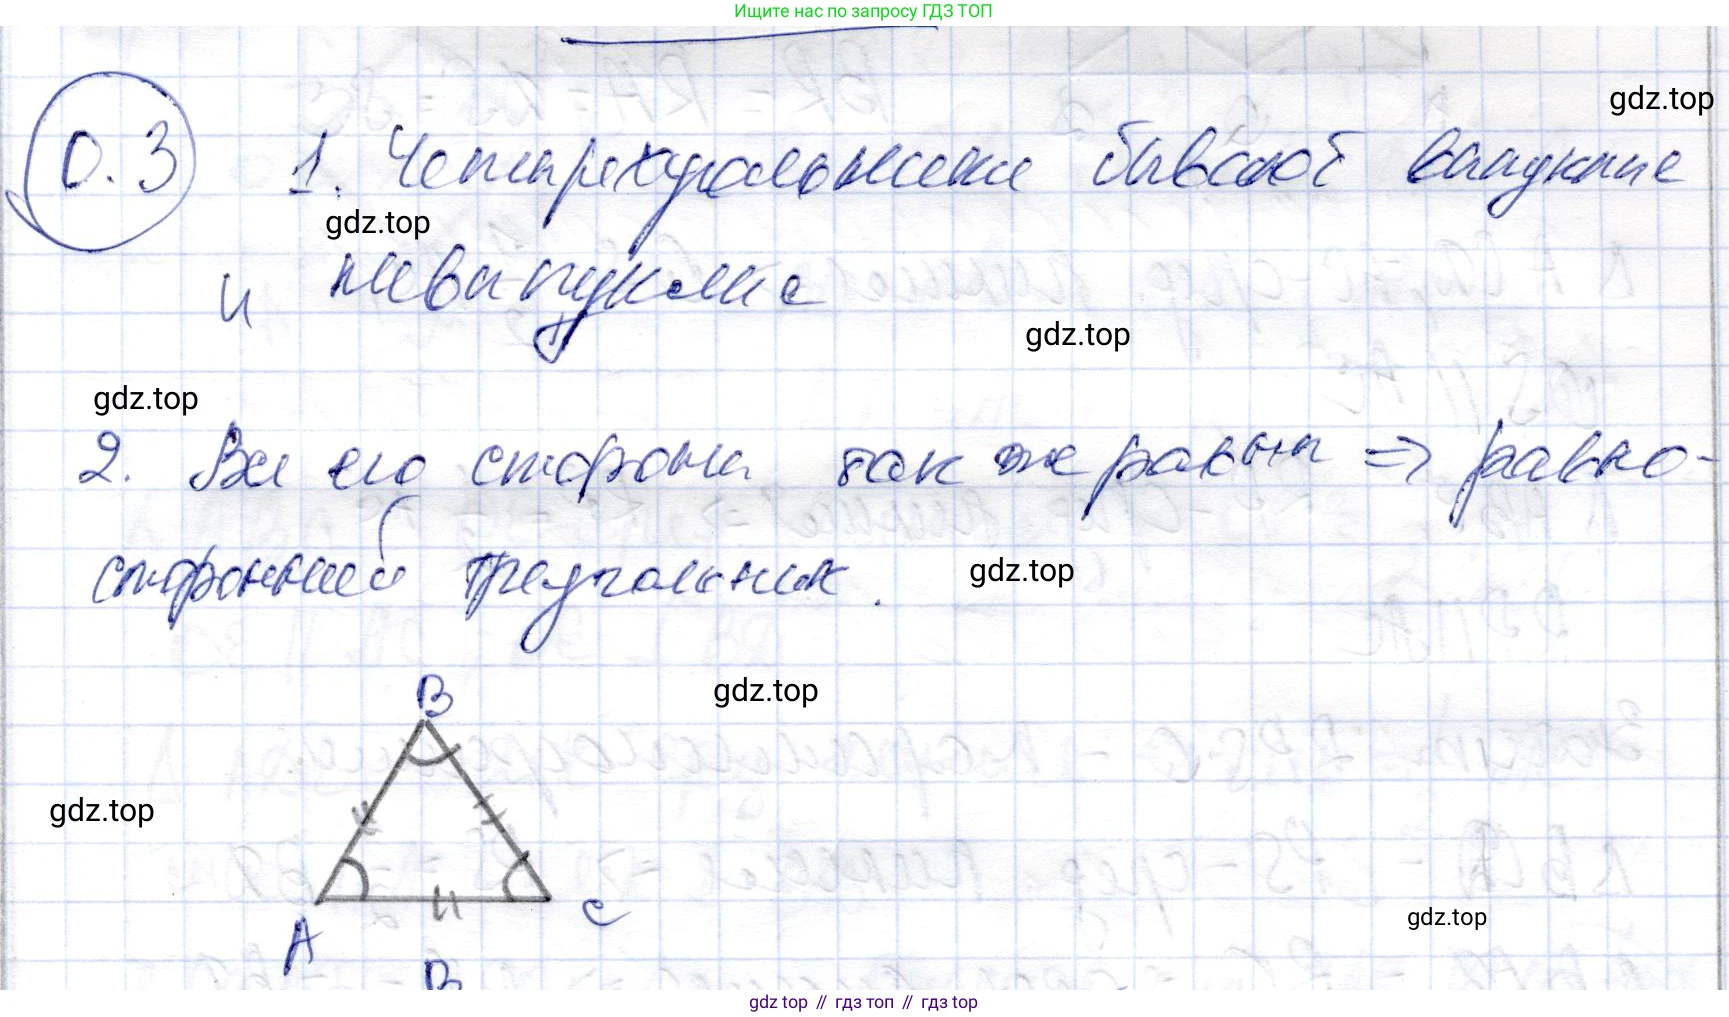 Ищите нас по запросу ГДЗ ТОП
gdz.top
0.3 1. Четырехугольники бывают выпуклые
gdz.top
и невыпуклые
gdz.top
gdz.top
2. Все его стороны так же равны => равно-
сторонний треугольник.
gdz.top
B
gdz.top
gdz.top
A C
gdz.top
B
gdz.top // гдз топ // гдз top